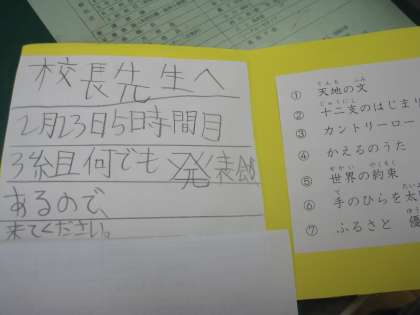 校長先生へ
2月23日5時間目
3組何でも発表会が
あるので、
来てください。
① 天地の文
② 十二支のはじまり
③ カントリーロー
④ かえるのうた
⑤ 世界の約束
⑥ 手のひらを太
⑦ ふるさと 優